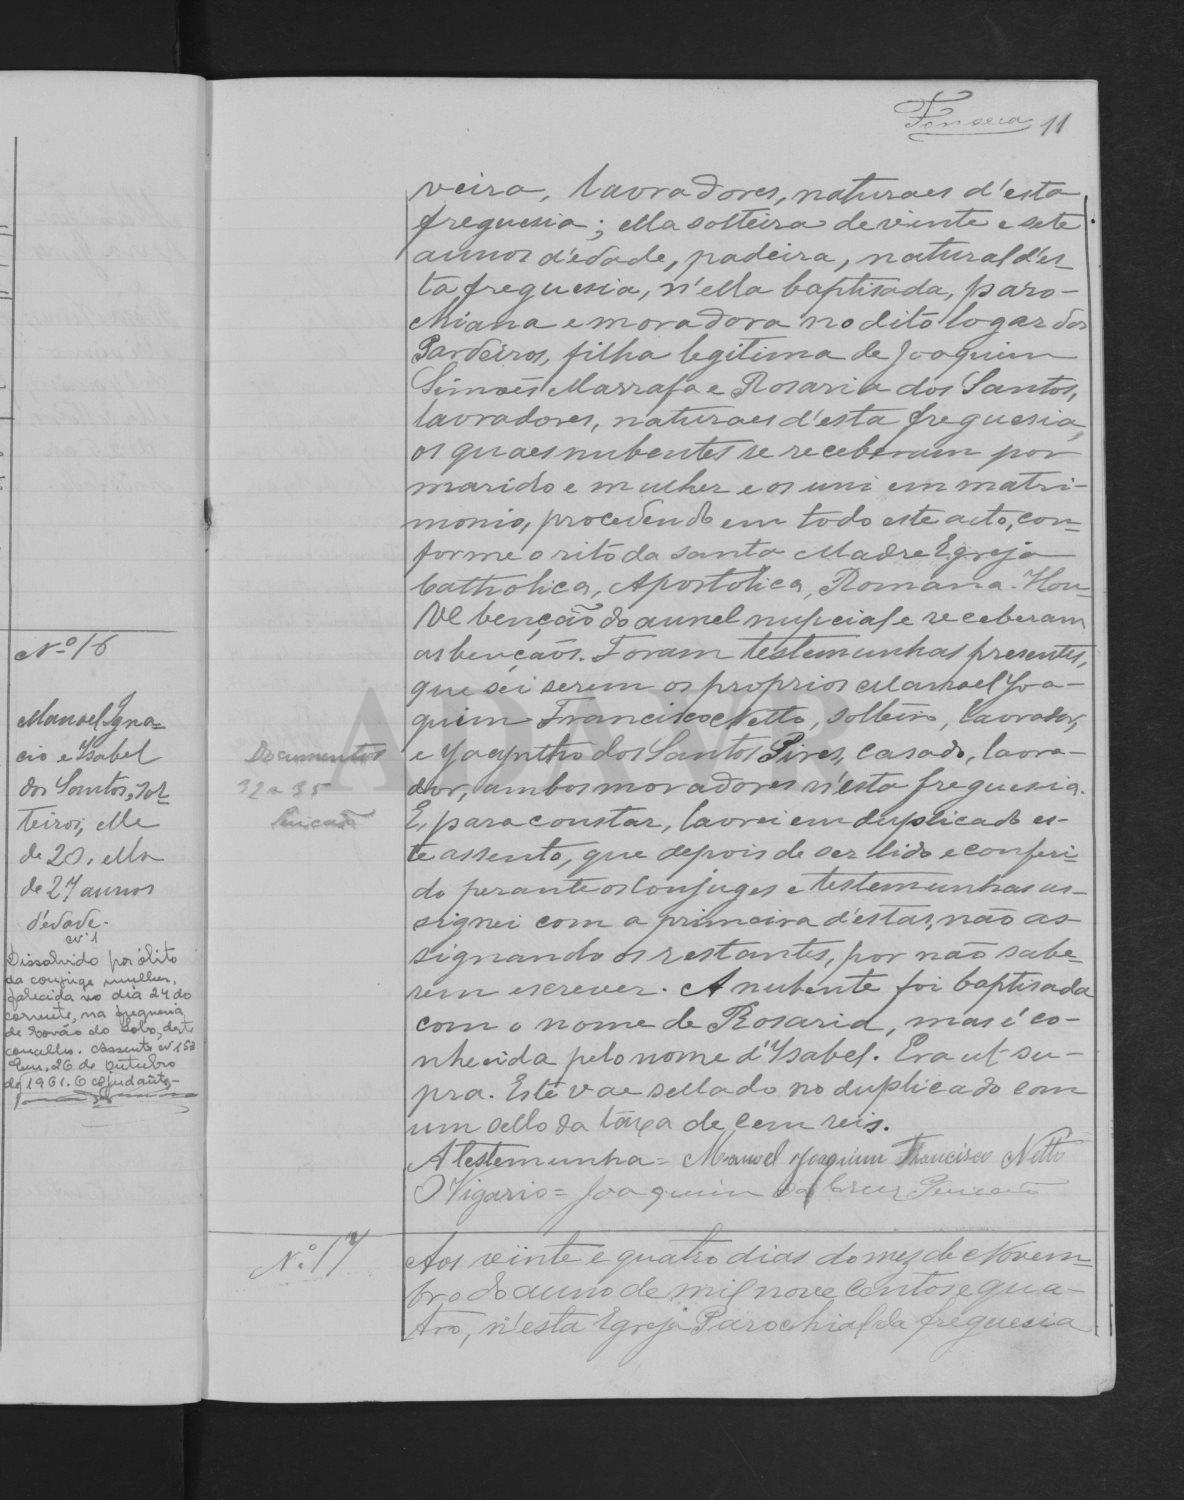 Fonseca 11
veira, lavradores, naturaes d'esta
freguesia; ella solteira de vinte e sete
annos d'edade, padeira, natural d'es-
ta freguesia, n'ella baptisada, paro-
chiana e moradora no dito logar dos
Pardeiros, filha legitima de Joaquim
Simões Marrafa e Rosaria dos Santos,
lavradores, naturaes d'esta freguesia,
os quaes nubentes se receberam por
marido e mulher e os uni em matri-
monio, procedendo em todo este acto, con-
forme o rito da santa Madre Egreja
Catholica, Apostolica, Romana. Hou-
ve benção do annel nupcial e receberam
as bençãos. Foram testemunhas presentes,
que sei serem os proprios Manoel Joa-
quim Francisco Netto, solteiro, lavrador,
e Jacyntho dos Santos Pires, casado, lavra-
dor, ambos moradores n'esta freguesia.
E, para constar, lavrei em duplicado es-
te assento, que depois de ser lido e conferi-
do perante os conjuges e testemunhas as-
signei com a primeira d'estas, não as-
signando os restantes, por não sabe-
rem escrever. A nubente foi baptisada
com o nome de Rosaria, mas é co-
nhecida pelo nome d'Ysabel. Era ut su-
pra. Este vae sellado no duplicado com
um sello da taxa de cem reis.
A testemunha = Manoel Joaquim Francisco Netto
O Vigario = Joaquim da Cruz
Nº 16
Manoel Igna-
cio e Ysabel
dos Santos, sol-
teiros, elle
de 20, ella
de 27 annos
d'edade.
nº 1
Dissolvido por óbito
da conjuge mulher,
falecida no dia 24 do
corrente, na freguesia
de Covão do Lobo, deste
concelho. Assento nº 153
Em, 26 de Outubro
de 1961. O Ajudante-
Documentos
32 a 35
Nº 17
Aos veinte e quatro dias do mez de Novem-
bro do anno de mil nove centos e qua-
tro, n'esta Egreja Parochial da freguesia